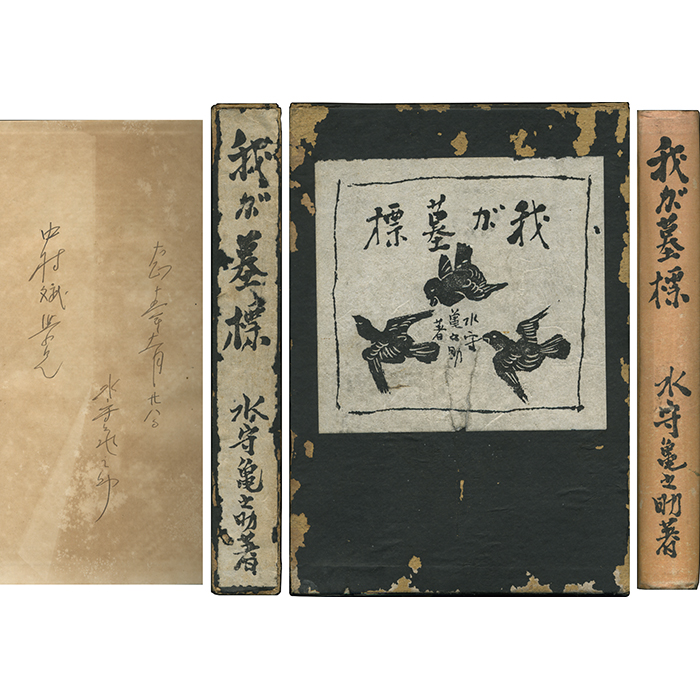 水守亀之助
中村
我が墓標 水守亀之助著
我が墓標
水守
亀之助
著
我が墓標 水守亀之助著